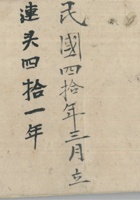 民國四拾年三月立
連头四拾一年